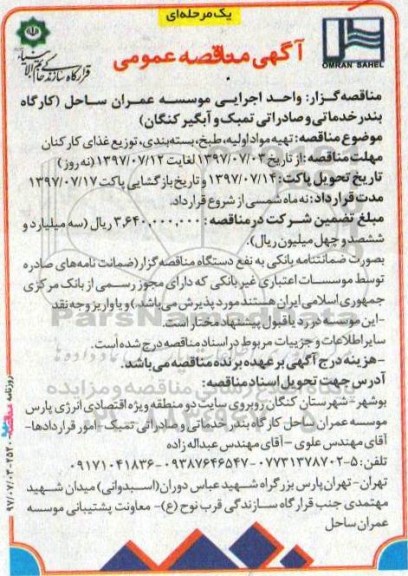 یک مرحله‌ای
آگهی مناقصه عمومی
قرارگاه سازندگی خاتم الانبیاء
OMRAN SAHEL
مناقصه گزار: واحد اجرایی موسسه عمران ساحل (کارگاه
بندر خدماتی و صادراتی تمبک و آبگیر کنگان)
موضوع مناقصه: تهیه مواد اولیه، طبخ، بسته‌بندی، توزیع غذای کارکنان
مهلت مناقصه: از تاریخ ۱۳۹۷/۰۷/۰۳ لغایت ۱۳۹۷/۰۷/۱۲ (نه روز)
تاریخ تحویل پاکت: ۱۳۹۷/۰۷/۱۴ و تاریخ بازگشایی پاکت ۱۳۹۷/۰۷/۱۷
مدت قرارداد: نه ماه شمسی از شروع قرارداد.
مبلغ تضمین شرکت در مناقصه: ۳,۶۴۰,۰۰۰,۰۰۰ ریال (سه میلیارد و
ششصد و چهل میلیون ریال).
بصورت ضمانتنامه بانکی به نفع دستگاه مناقصه گزار (ضمانت نامه‌های صادره
توسط موسسات اعتباری غیر بانکی که دارای مجوز رسمی از بانک مرکزی
جمهوری اسلامی ایران هستند مورد پذیرش می‌باشد.) و یا واریز وجه نقد
-این موسسه در رد یا قبول پیشنهاد مختار است.
سایر اطلاعات و جزییات مربوط در اسناد مناقصه درج شده است.
-هزینه درج آگهی بر عهده برنده مناقصه می‌باشد.
آدرس جهت تحویل اسناد مناقصه:
بوشهر-شهرستان کنگان روبروی سایت دو منطقه ویژه اقتصادی انرژی پارس
موسسه عمران ساحل کارگاه بندر خدماتی و صادراتی تمبک-امور قراردادها-
آقای مهندس علوی - آقای مهندس عبداله زاده
تلفن: ۵-۰۷۷۳۱۳۷۸۷۰۲ - ۰۹۳۸۷۶۴۶۵۴۷ - ۰۹۱۷۱۰۴۱۸۳۶
تهران-تهران پارس بزرگراه شهید عباس دوران (اسبدوانی) میدان شهید
مهتمدی جنب قرارگاه سازندگی قرب نوح (ع)- معاونت پشتیبانی موسسه
عمران ساحل
ParsNamadData
روزنامه مناقصه مزایده ۲۵۲۰-۹۷/۰۷/۰۳